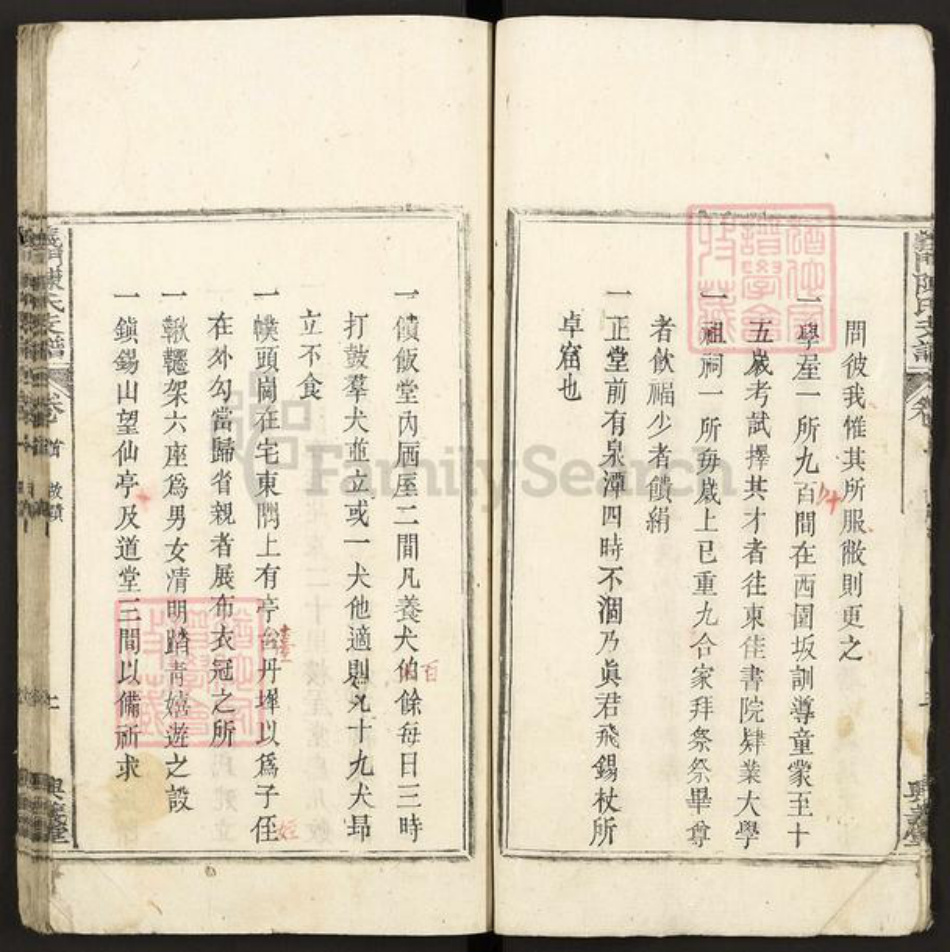 問彼我惟其所服敝則更之
一學屋一所九百間在西園坂訓導童蒙至十
五歲考試擇其才者往東佳書院肄業大學
一祖祠一所每歲上已重九合家拜祭祭畢尊
者飲福少者饋絹
一正堂前有泉潭四時不涸乃眞君飛錫杖所
卓窟也
一饙飯堂內廼屋二間凡養犬伯餘每日三時
打鼓羣犬並立或一犬他適則九十九犬昻
立不食
一幞頭崗在宅東閈上有亭台丹墀以爲子侄
在外勾當歸省親者展布衣冠之所
一鞦韆架六座爲男女清明踏靑嬉遊之設
一鎭錫山望仙亭及道堂三間以備祈求
百
臺
姪
義門陳氏支譜
卷首
故蹟
興義堂
FamilySearch